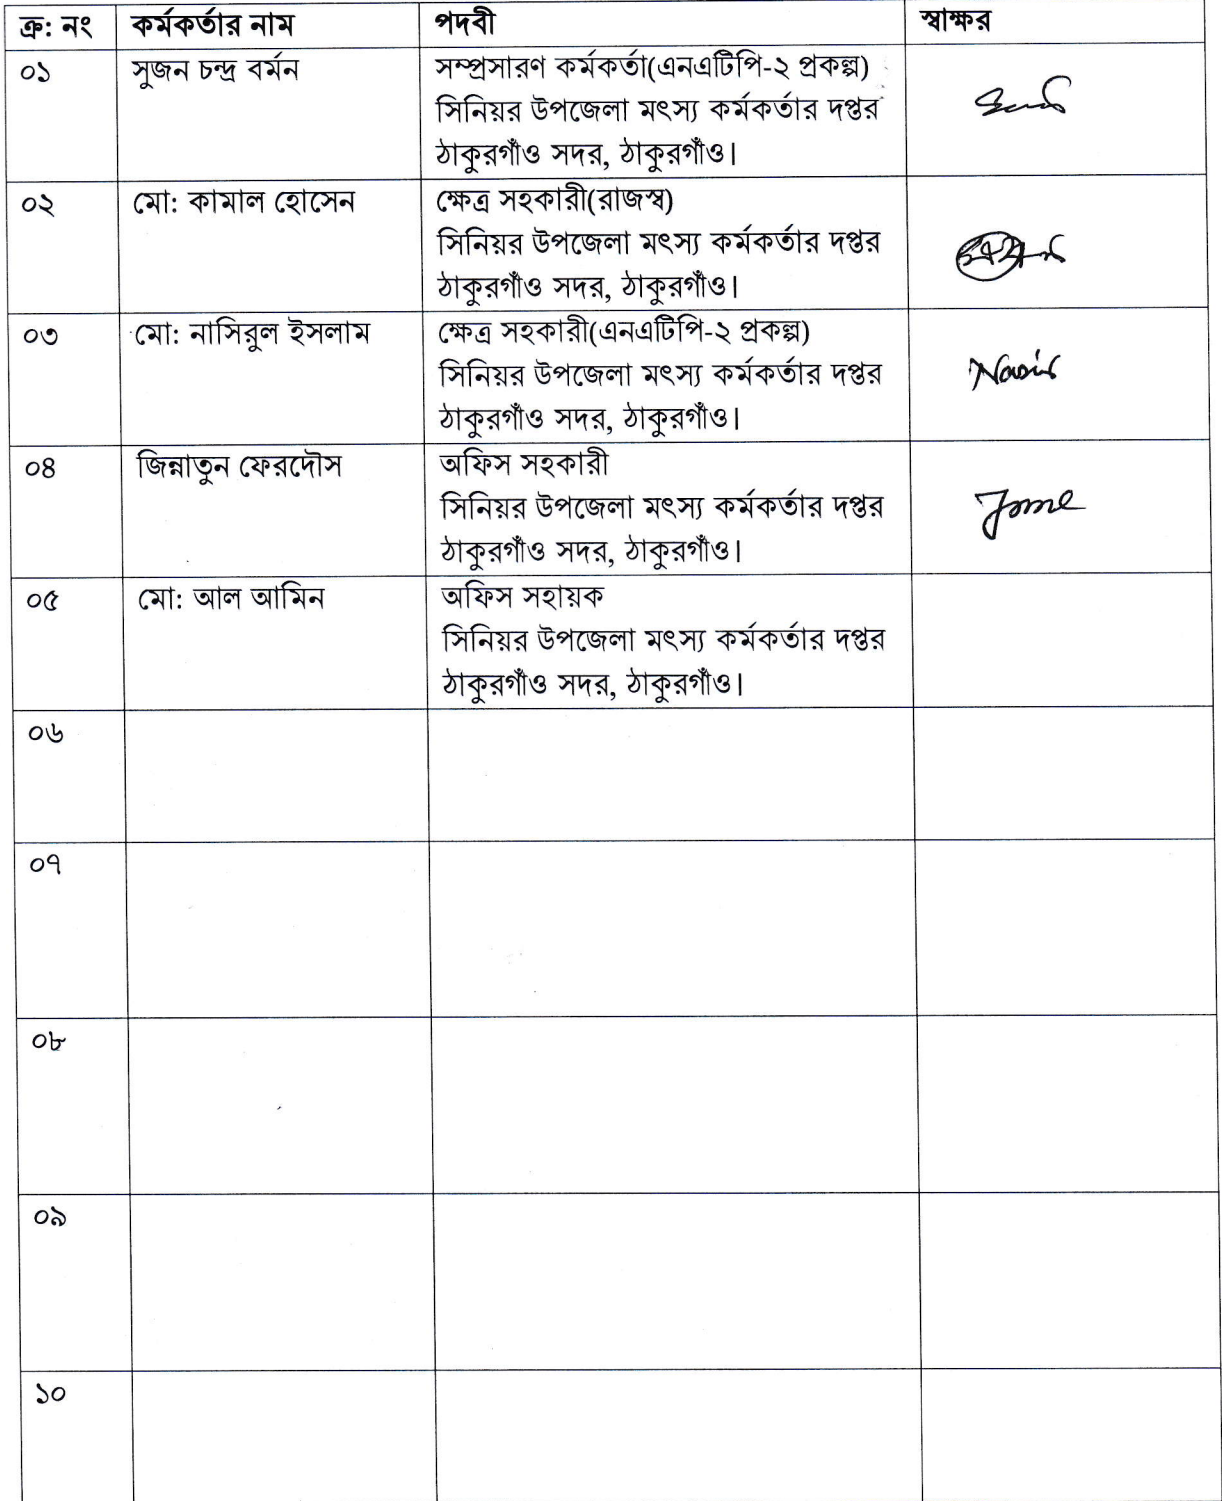 ক্র: নং কর্মকর্তার নাম পদবী স্বাক্ষর
০১ সুজন চন্দ্র বর্মন সম্প্রসারণ কর্মকর্তা(এনএটিপি-২ প্রকল্প)
সিনিয়র উপজেলা মৎস্য কর্মকর্তার দপ্তর
ঠাকুরগাঁও সদর, ঠাকুরগাঁও।
০২ মো: কামাল হোসেন ক্ষেত্র সহকারী(রাজস্ব)
সিনিয়র উপজেলা মৎস্য কর্মকর্তার দপ্তর
ঠাকুরগাঁও সদর, ঠাকুরগাঁও।
০৩ মো: নাসিরুল ইসলাম ক্ষেত্র সহকারী(এনএটিপি-২ প্রকল্প)
সিনিয়র উপজেলা মৎস্য কর্মকর্তার দপ্তর
ঠাকুরগাঁও সদর, ঠাকুরগাঁও।
Nasir
০৪ জিন্নাতুন ফেরদৌস অফিস সহকারী
সিনিয়র উপজেলা মৎস্য কর্মকর্তার দপ্তর
ঠাকুরগাঁও সদর, ঠাকুরগাঁও।
০৫ মো: আল আমিন অফিস সহায়ক
সিনিয়র উপজেলা মৎস্য কর্মকর্তার দপ্তর
ঠাকুরগাঁও সদর, ঠাকুরগাঁও।
০৬
০৭
০৮
০৯
১০